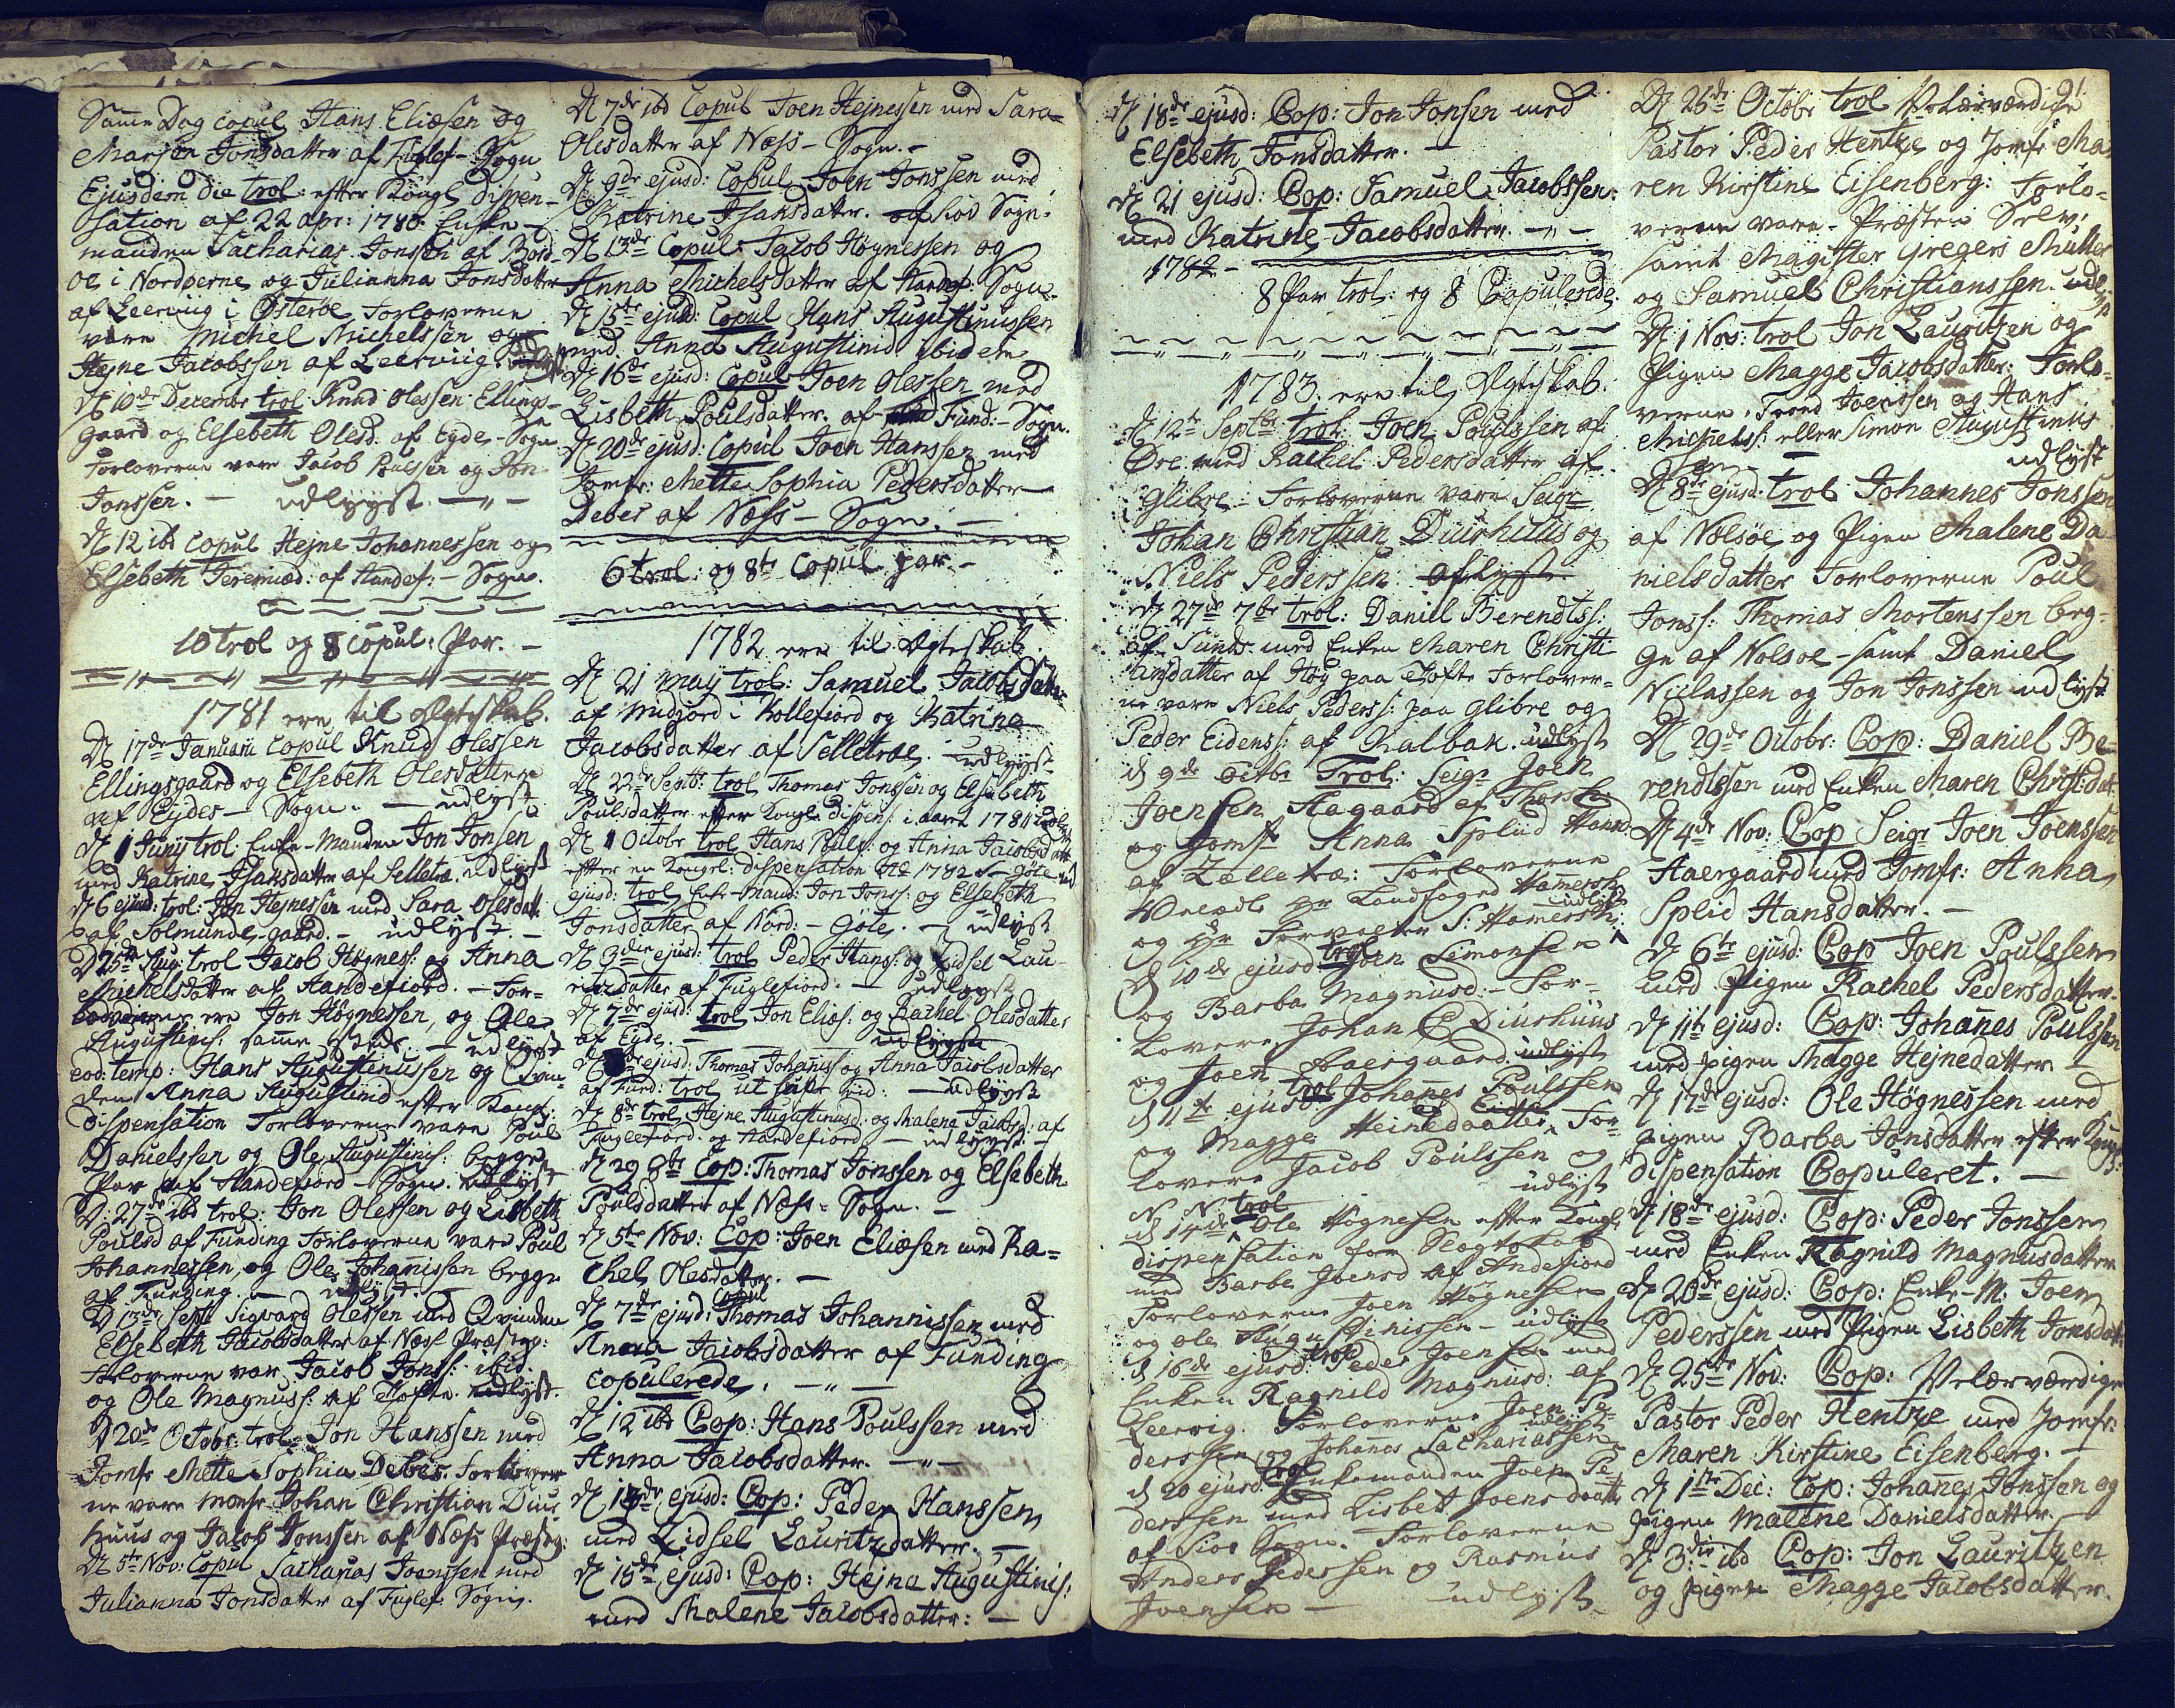 Samme Dag copul Hans Eliæsen og
Marjen Jonsdatter af Fuglef- Sogn
Ejusdem die trol: efter Kongl dispen-
sation af 22 apr: 1780. Enke-
manden Sacharias Jonssen af Bord-
oe i Norderne og Julianna Jonsdatter
af Leerviig i Østerøe Forloverne
vare Michel Michelssen og
Hejne Jacobssen af Leerviig.
D 10de Decembr trol Knud Olessen Ellings-
gaard og Elsebeth Olesd: af Eyde-Sogn
Forloverne vare Jacob Poulsen og Jon
Jonssen. - udlyyst. -"-
D 12 ibd copul Hejne Johannessen og
Elsebeth Jeremiæd: af Handef: - Sogn.
10 trol og 8 copul: Par. -
1781 ere til Ægteskab.
D 17de Januarii copul Knud Olessen
Ellingsgaard og Elsebeth Olesdatter
af Eydes- Sogn. - udlyst
D 1 Junÿ trol: Enke-Manden Jon Jonsen
med Katrine Isaksdatter af Selletræ. udlyst
D 6 ejusd: trol: Jon Hejnessen med Sara Olesdatt:
af Solmunde-gaard. - udlyst. -
D 25de Aug: trol Jacob Högness: og Anna
Michelsdatter af Handefiord. - For-
loverne ere Jon Högnessen, og Ole
Augustinis: samme steds. - udlyst
eod: temp: Hans Augustinussen og Qvin-
den Anna Augustinid efter Kongl:
dispensation Forloverne vare Poul
Danielssen og Ole Augustinis: begge
Par af Handefiord-Sogn. udlyst
D: 27de ibd trol: Jon Olessen og Lisbeth
Poulsd af Funding Forloverne vare Poul
Johannessen, og Ole Johannissen begge
af Funding. - udlyst. -
D 13de Sept Sigvard Olessen med Qvinden
Elsebeth Jacobsdatter af Næss Præsteg:
Forloverne var Jacob Jonss: ibid.
og Ole Magnuss: af Tofte. udlyst.
D 20de Octobr: trol. Jon Hanssen med
Jomfr Mette Sophia Debes. Forlover-
ne vare Monsr Johan Christian Diur-
huus og Jacob Jonssen af Næss Præsteg:
D 5te Nov: Copul Sacharias Joenssen med
Julianna Jonsdatter af Fuglef: Sogn.
D 7de ibd Copul Joen Hejnessen med Sara
Olesdatter af Næss- Sogn. -
D 9de ejusd: Copul Joen Jonssen med
Katrine Isaksdatter. af Siov Sogn.
D 13de Copul: Jacob Högnessen og
Anna Michelsdatter af Handef: Sogn.
D 15te ejusd: Copul Hans Augustinussen
med Anna Augustinid ibidem
D 16de ejusd: Copul Joen Olessen med
Lisbeth Poulsdatter. af Fund:- Sogn.
D 20de ejusd: Copul Joen Hanssen med
Jomfr: Mette Sophia Pedersdatter
Debes af Næss- Sogn. -
6 trol: og 8te Copul par. -
1782 ere til Ægteskab.
D 21 maÿ trol: Samuel Jacobsdatter
af midgord i Kollefiord og Katrina
Jacobsdatter af Selletræ. - udlyyst
D 22de Septbr trol Thomas Jonssen og Elsebeth
Poulsdatter efter Kongl: dispens: i aaret 1781
D 1 Octobr trol Hans Pouls: og Anna Jacobsdatt
efter en Kongel: dispensation 1782 S- Göte
ejusd: trol Enke-Mand: Jon Jonss: og Elsebeth
Jonsdatter af Nord: - Göte. - udlyst
D 3die ejusd: trol Peder Hans: og Zidsel Lau-
ritzdatter af Fuglefiord: - udlyst
D 7de ejusd: trol Jon Eliæs: og Rachel Olesdatter
af Eyde. - udlyyst
ejusd: Thomas Johaniss: og Anna Jacobsdatter
af Fund: trol ut supr vid: - udlyst
D 8de trol Hejne Augustinusd: og Malena Jacobsd: af
Fuglefiord: og Handefiord - udlyyst. -
D 29 8br Cop: Thomas Jonssen og Elsebeth
Poulsdatter af Næss- Sogn. -
D 5te Nov: Cop: Joen Eliæsen med Ra=
chel Olesdatter. -
copul
D 7de ejusd: Thomas Johannissen med
Anna Jacobsdatter af Funding
copulerede. -"-
D 12 ibd Cop: Hans Poulssen med
Anna Jacobsdatter. -"-
D 13de ejusd: Cop: Peder Hanssen
med Zidsel Lauritzdatter. -
D 15de ejusd: Cop: Hejna Augustinis:
med Malene Jacobsdatter: -
D 18de ejusd: Cop: Jon Jonsen med
Elsebeth Jonsdatter. -
D 21 ejusd: Cop: Samuel Jacobssen.
med Katrine Jacobsdatter. -"-
1782 -
8 Par trol: og 8 Copulerede.
1783. ere til Ægteskab.
D 12te Septbr trol: Joen Poulssen af
Øre med Rachel Pedersdatter af
Glibre. Forloverne vare Seigr
Johan Christian Diurhuus og
Niels Pederssen: aflyst
D 27de 7br trol: Daniel Berendtss:
af Sundt med Enken Maren Christi-
ansdatter af Höy paa Tofte Forlover-
ne vare Niels Pederss: paa Glibre og
Peder Eidenss: af Kalbak. udlyst
D 9de Octbr Trol: Seigr Joen
Joensen Aagaard af Thorsh:
og Jomfr Anna Splid Hansd:
af Zelletræ: Forloverne
Velædle Hr Landfoged Hammersh:
udlyst
og Hr Forvalter S: Hamersh:
D 10de ejusd: trol Joen Simonsen
og Barba Magnusd:- For-
lovere Johan C Diurhuus
og Joen Haergaard. udlyst
D 11te ejusd: trol Johanes Poulssen
og Magge Heinedaatter, For-
lovere Jacob Poulssen og
N. N. udlyst
D 14de trol Ole Högnesen efter Kongl.
dispensation for Slægtskab
med Barbe Joensd af Andefiord
Forloverne Joen Högnesen
og Ole Augustinissen - udlyst
D 16de ejusd: trol Peder Joensen med
Enken Ragnild Magnusd: af
Leervig. Forloverne Joen Pe-
udlyst
dersen og Johanes Sachariassen
D 20 ejusd: trol Enkemanden Joen Pe-
dersen med Lisbet Joensdaatt
af Siov Sogn. Forloverne
Anders Pedersen og Rasmus
Joensen - udlyst
91.
D 26de Octobr trol Velærværdige
Pastor Peder Hentze og Jomfr Ma-
ren Kirstine Eisenberg: Forlo-
verne vare. Præsten Selv:
samt Magister Gregers Müller
og Samuel Christianssen. udl:
D 1 Nov: trol Jon Lauritzen og
Pigen Magge Jacobsdatter. Forlo-
verne. Trond Joenssen og Hans
Michelss: eller Simon Augustinus
Sen - udlyst
D 8de ejusd: trol Johannes Jonssen
af Nolsöe og Pigen Malene Da-
nielsdatter Forloverne Poul
Jonss: Thomas Mortenssen beg-
ge af Nolsoe - samt Daniel
Niclassen og Jon Jonssen udlyst
D 29de Octobr: Cop: Daniel Be-
rendtssen med Enken Maren Christ:dat:
D 4de Nov: Cop Seigr Joen Joenssen
Haergaard med Jomfr: Anna
Splid Hansdatter. -
D 6te ejusd: Cop Joen Poulssen
med Pigen Rachel Pedersdatter.
D 11te ejusd: Cop: Johanes Poulssen
med pigen Magge Hejnedatter -
D 17de ejusd: Ole Högnessen med
pigen Barba Jonsdatter efter Kongl:
dispensation Copuleret. -
D 18de ejusd: Cop: Peder Jonssen
med Enken Ragnild Magnusdatter
D 20de ejusd: Cop: Enke-M: Joen
Pederssen med Pigen Lisbeth Jonsdatt:
D 25te Nov: Cop: Velærværdige
Pastor Peder Hentze med Jomfr:
Maren Kirstine Eisenberg. -
D 1te Dec: Cop: Johanes Jonssen og
Pigen Malene Danielsdatter.
D 3die ibd Cop: Jon Lauritzen
og pigen Magge Jacobsdatter.